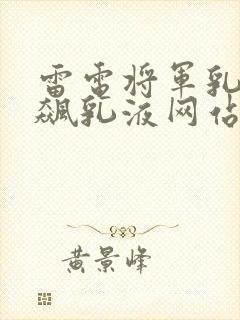 雷电将军乳
飙乳液网站
黄景峰